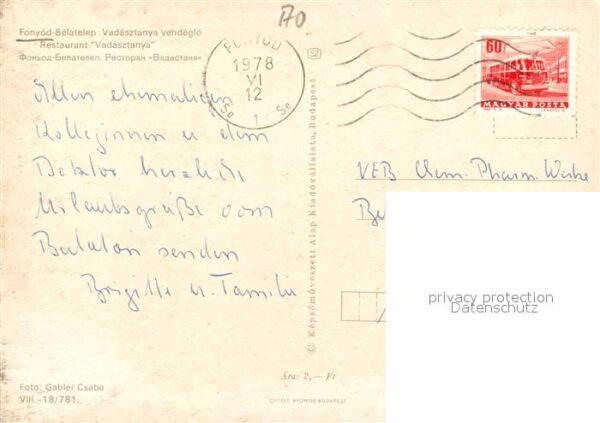 A70
Fonyód-Bélatelep Vadásztanya vendéglő
Restaurant "Vadásztanya"
Фоньод-Белателеп. Ресторан «Вадастаня»
FONYÓD
1978
VI
12
1
60f
MAGYAR POSTA
Allen ehemaligen
Kolleginnen u. dem
Doktor herzliche
Urlaubsgrüße vom
Balaton senden
Brigitte u. Familie
© Képzőművészeti Alap Kiadóvállalata, Budapest
VEB Chem. Pharm. Werke
Be
privacy protection
Datenschutz
Ára: 2,— Ft
Foto: Gabler Csaba
VIII.-18/781.
OFFSET NYOMDA BUDAPEST